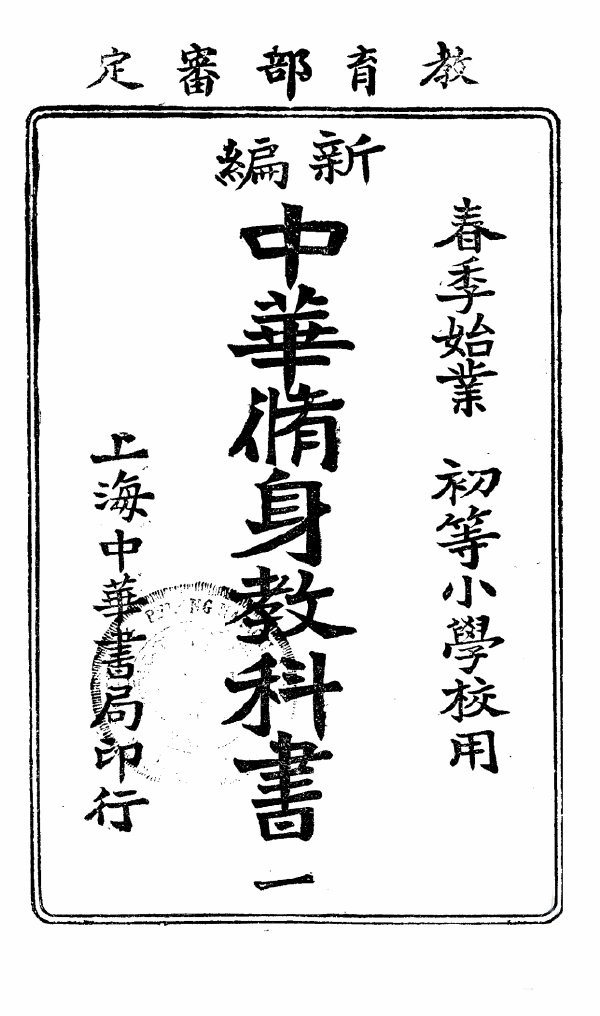 教育部審定
春季始業 初等小學校用
新編
中華脩身教科書 一
上海中華書局印行